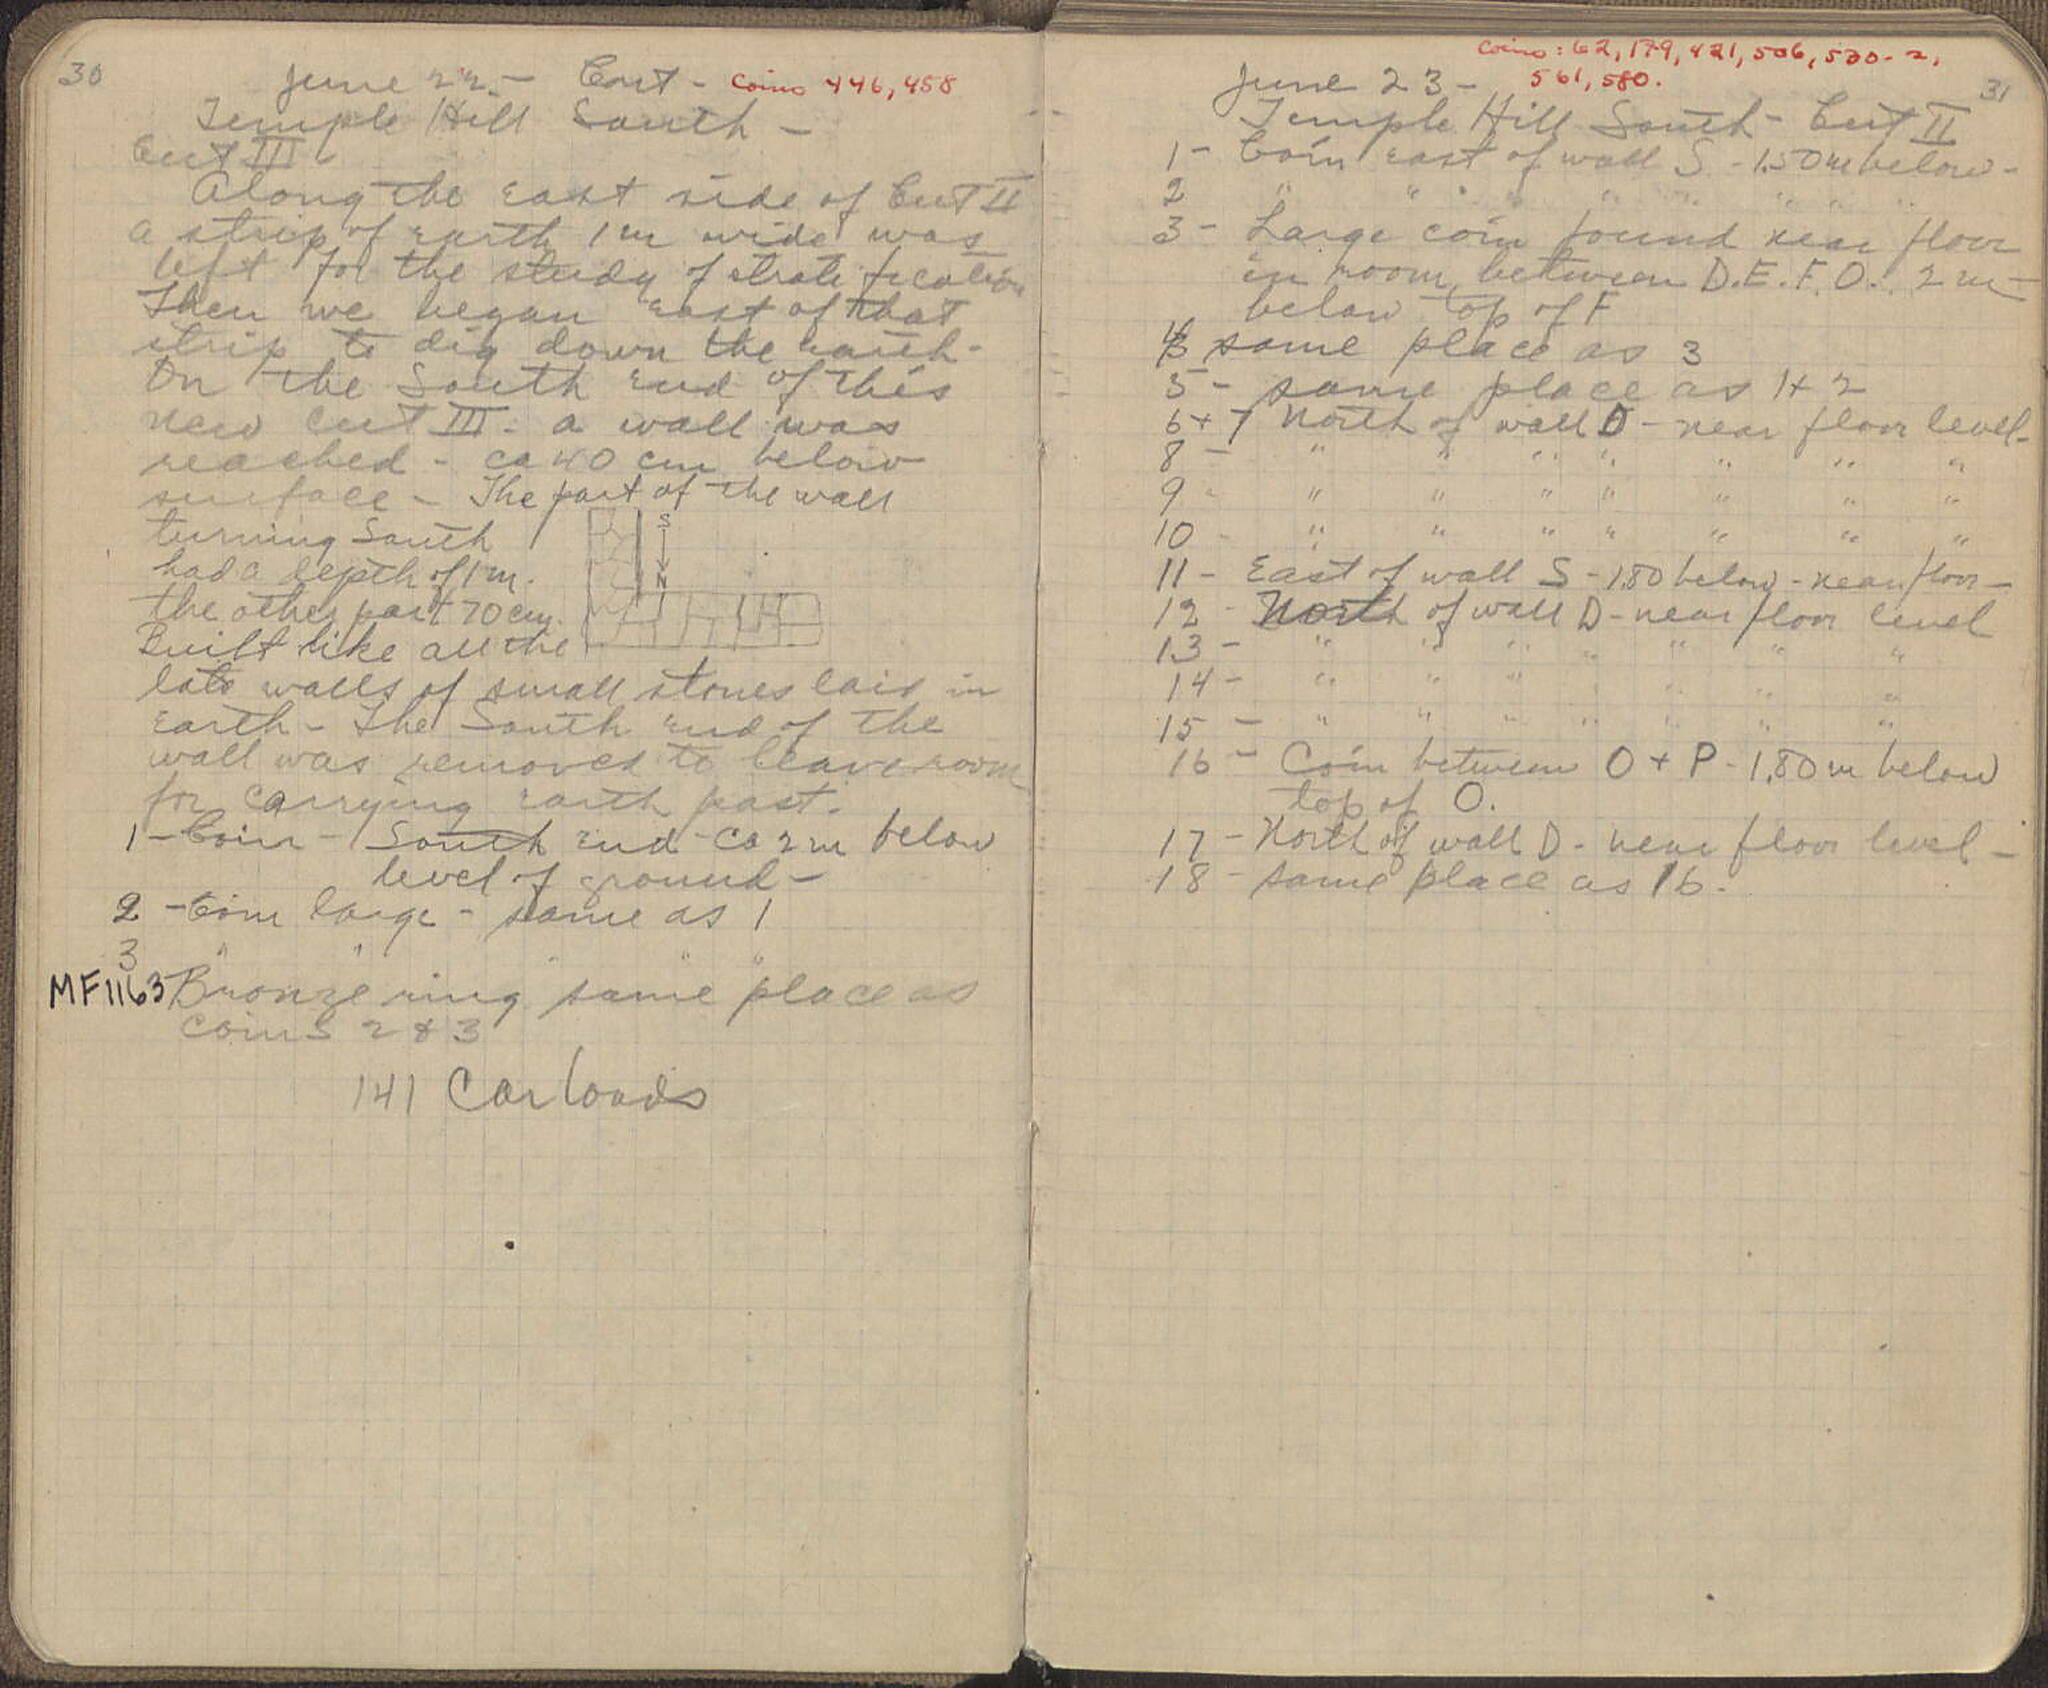 30
June 22 - Cont - Coins 446, 458
Temple Hill South -
Cut III
Along the east side of Cut II
a strip of earth 1 m wide was
left for the study of stratification
Then we began east of that
strip to dig down the earth -
On the South end of this
new cut III - a wall was
reached - ca 40 cm below
surface - The part of the wall
turning South
had a depth of 1 m.
the other part 70 cm.
Built like all the
S
N
late walls of small stones laid in
earth - The South end of the
wall was removed to leave room
for carrying earth past.
1 - Coin - South end - ca 2 m below
level of ground -
2 - Coin large - same as 1
3 " " " " "
MF1163 Bronze ring same place as
coins 2 & 3
141 Carloads
31
Coins: 62, 179, 421, 506, 530-2,
561, 580.
June 23 -
Temple Hill South - Cut II
1 - Coin east of wall S - 1.50 m below -
2 " " " " " " " "
3 - Large coin found near floor
in room between D.E.F.O. 2 m -
below top of F
4 same place as 3
5 - same place as 1 + 2
6 + 7 North of wall D - near floor level -
8 - " " " " " " "
9 - " " " " " " "
10 - " " " " " " "
11 - East of wall S - 1.80 below - near floor -
12 - North of wall D - near floor level
13 - " " " " " " "
14 - " " " " " "
15 - " " " " " " "
16 - Coin between O + P - 1.80 m below
top of O.
17 - North of wall D - near floor level -
18 - same place as 16.